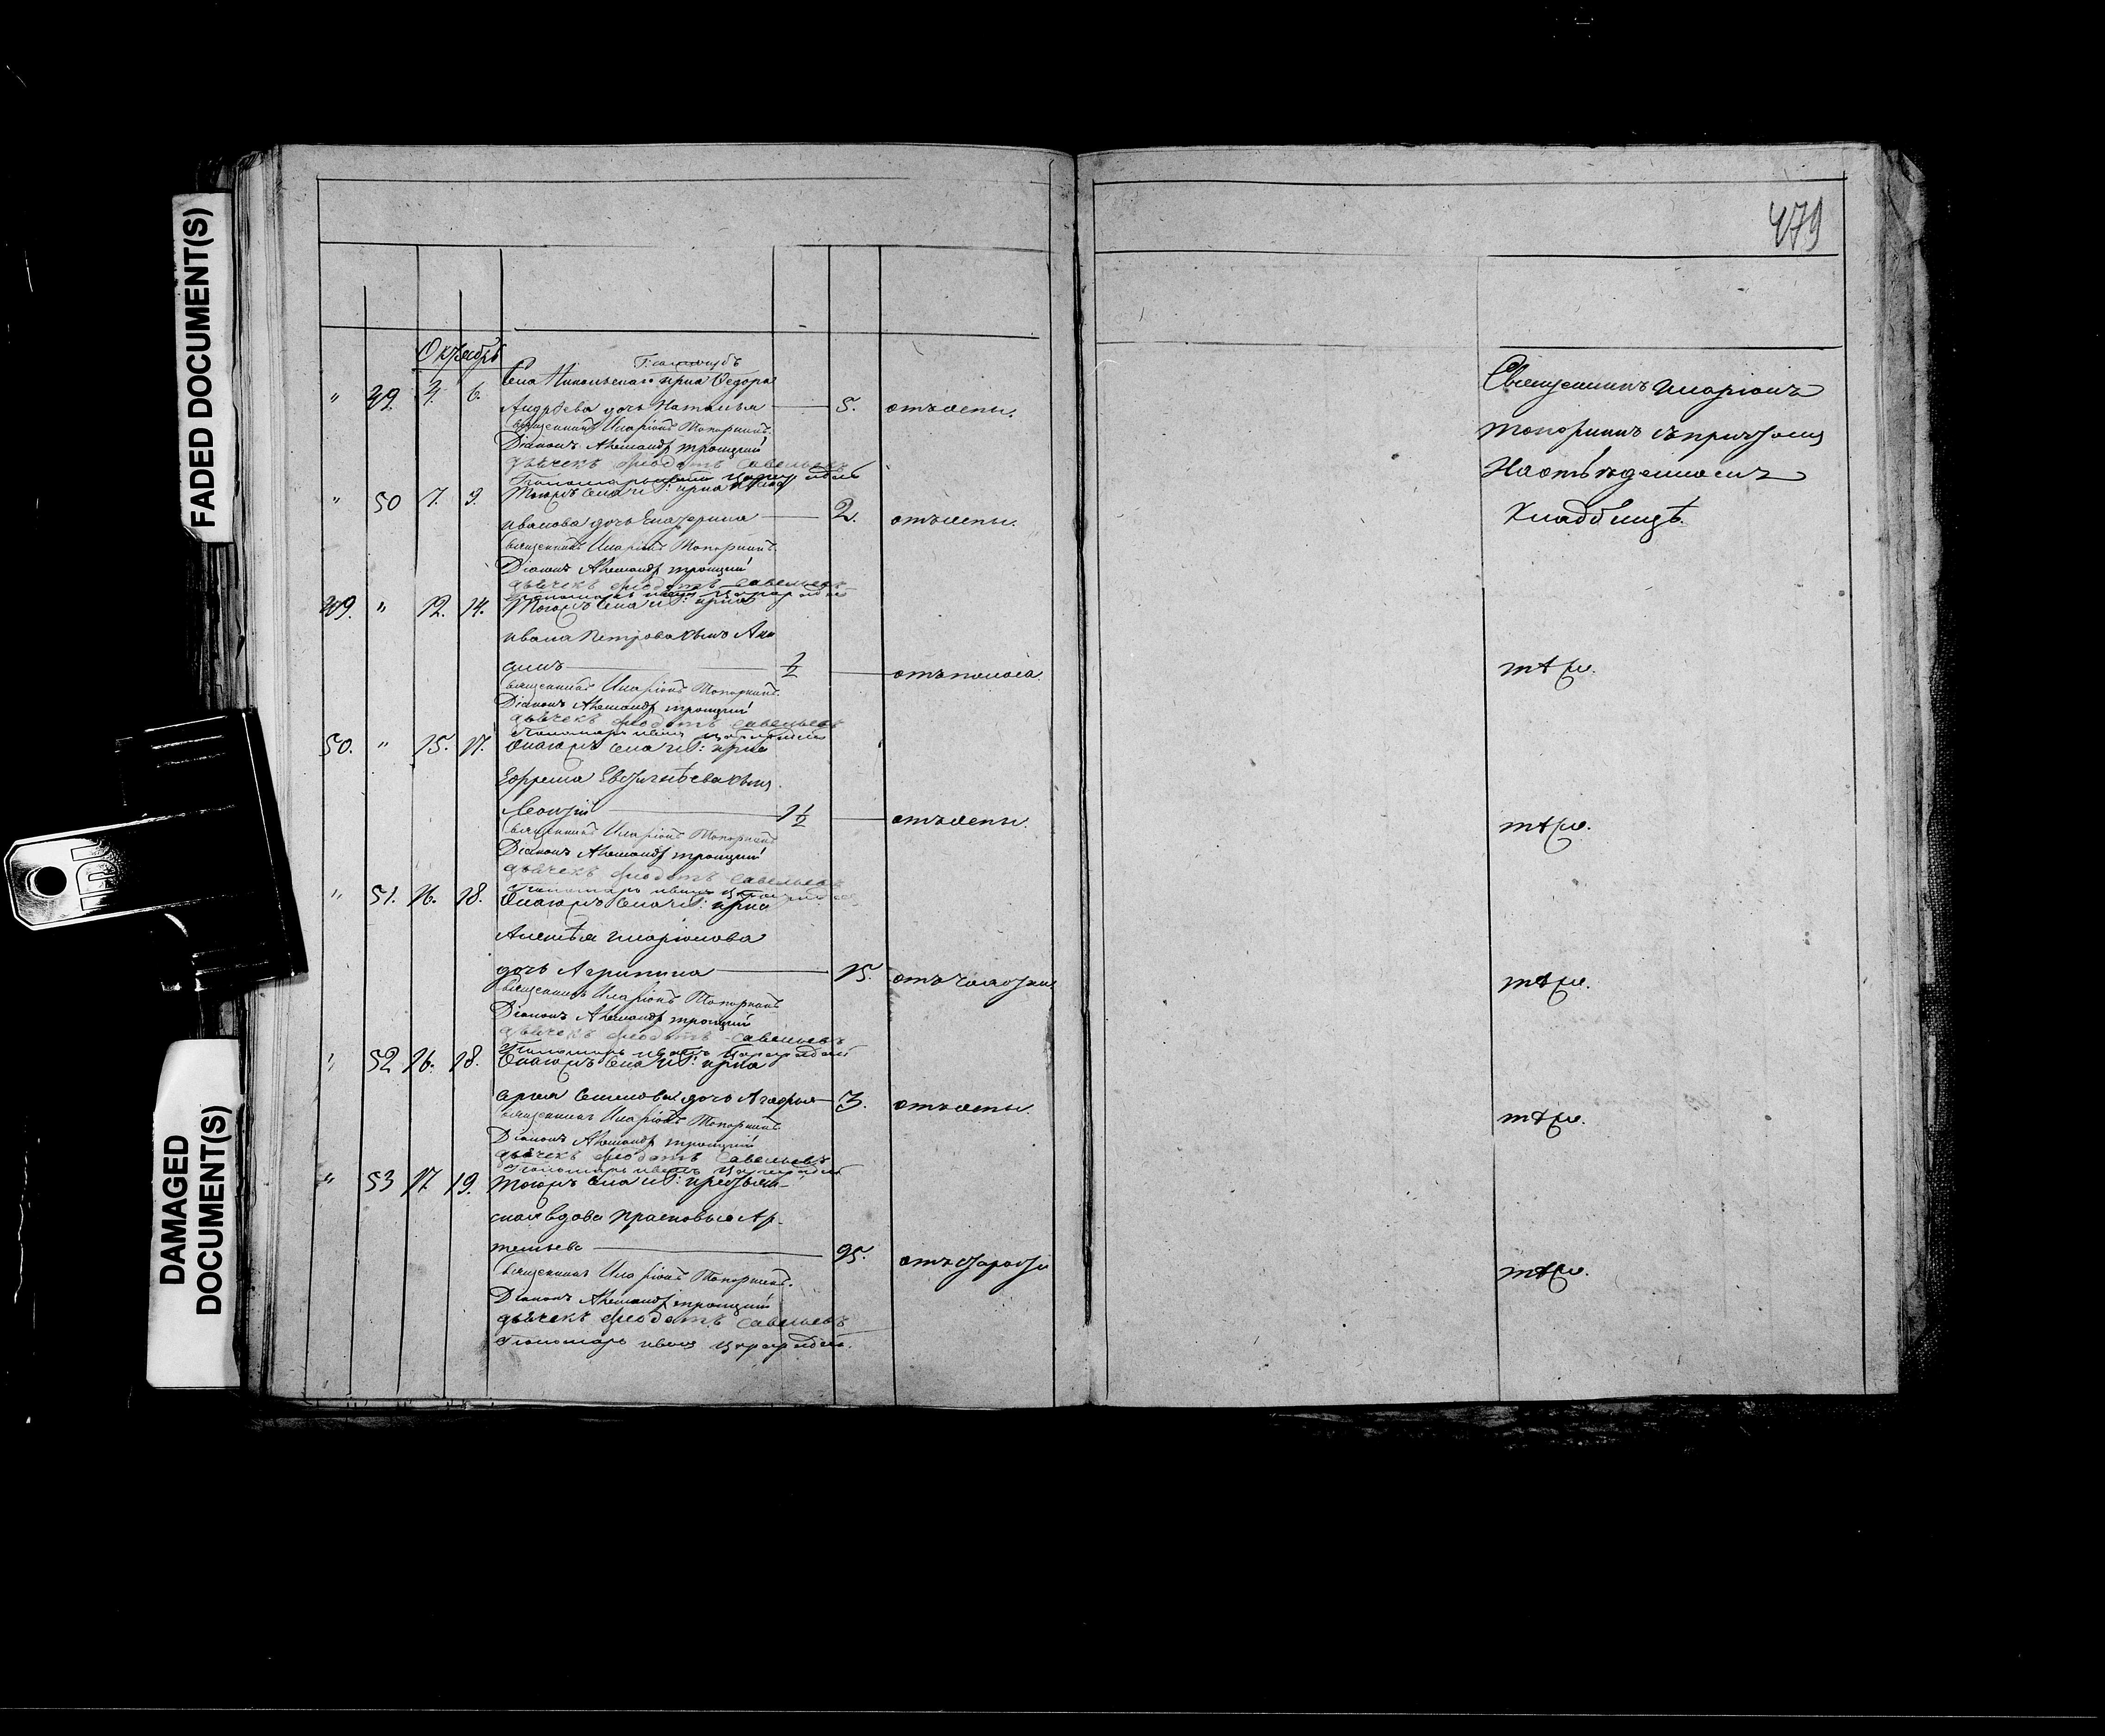 FADED DOCUMENT(S)
DAMAGED
DOCUMENT(S)
479
Октября
Села Никольскаго крна Ѳедора
" 49. 4. 6.
Андрѣева дочь Наталья 5. отъ оспы.
Священникъ Иларіонъ Топорнинъ.
Діаконъ Александр Троицкій
дьячекъ Ѳеодотъ Савельевъ
Пономарь
" 50 7. 9. Тогожъ села И: крна
Иванова дочь Екатерина 2. отъ оспы.
Священникъ Иларіонъ Топорнинъ.
Діаконъ Александр Троицкій
дьячекъ Ѳеодотъ Савельевъ
Пономарь Иванъ
49. " 12. 14. Тогожъ села И: крна
Ивана Петрова сынъ
1/2 отъ поноса.
Священникъ Иларіонъ Топорнинъ.
Діаконъ Александр Троицкій
дьячекъ Ѳеодотъ Савельевъ
Пономарь Иванъ
50. " 15. 17. Онагожъ села И: крна
Ефрема Евстигнѣева сынъ
1 1/2 отъ оспы.
Священникъ Иларіонъ Топорнинъ
Діаконъ Александр Троицкій
дьячекъ Ѳеодотъ Савельевъ
Пономарь Иванъ
" 51. 16. 18. Онагожъ села И: крна
Алексѣя Иларіонова
дочь Агрипина 15. отъ чахотки
Священникъ Иларіонъ Топорнинъ
Діаконъ Александр Троицкій
дьячекъ Ѳеодотъ Савельевъ
Пономарь Иванъ
" 52 16. 18. Онагожъ села И: крна
Семенова дочь Агафья 3. отъ оспы.
Священникъ Иларіонъ Топорнинъ.
Діаконъ Александр Троицкій
дьячекъ Ѳеодотъ Савельевъ
Пономарь Иванъ
" 53 17. 19. Тогожъ села И: крестьян-
ская вдова Прасковья Ар-
темьева 95. отъ старости
Священникъ Иларіонъ Топорнинъ.
Діаконъ Александр Троицкій
дьячекъ Ѳеодотъ Савельевъ
Пономарь Иванъ
Священникъ Иларіонъ
Топорнинъ съ причтомъ
На отведенномъ
Кладбищѣ.
тѣже.
тѣже.
тѣже.
тѣже.
тѣже.